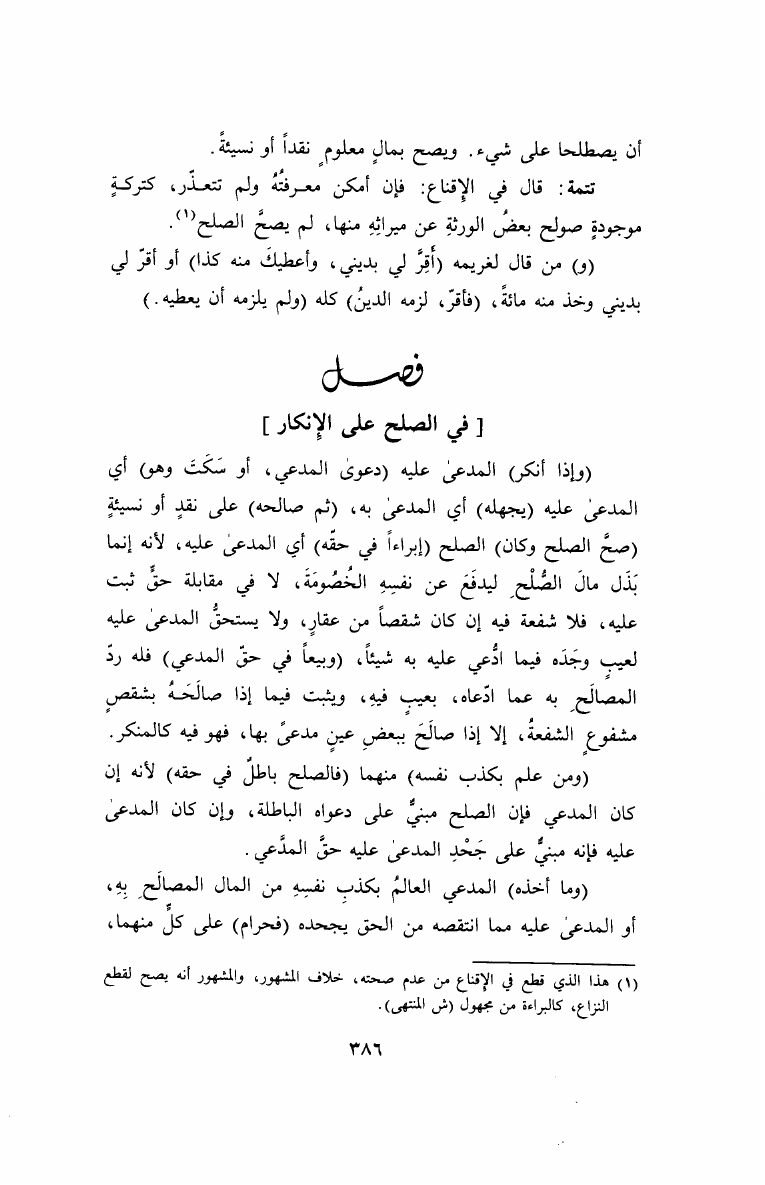 أن يصطلحا على شيء. ويصح بمالٍ معلومٍ نقداً أو نسيئةً.
تتمة: قال في الإِقناع: فإن أمكن معرفتُهُ ولم تتعذّر، كتركةٍ
موجودةٍ صولح بعضُ الورثةِ عن ميراثِهِ منها، لم يصحَّ الصلح(١).
(و) من قال لغريمه (أَقِرَّ لي بديني، وأعطيكَ منه كذا) أو أقرّ لي
بديني وخذ منه مائةً، (فأقرّ، لزمه الدينُ) كله (ولم يلزمه أن يعطيه.)
فصل
[ في الصلح على الإِنكار ]
(وإذا أنكر) المدعىٰ عليه (دعوىٰ المدعي، أو سَكَتَ وهو) أي
المدعىٰ عليه (يجهله) أي المدعىٰ به، (ثم صالحه) على نقدٍ أو نسيئةٍ
(صحَّ الصلح وكان) الصلح (إبراءاً في حقّه) أي المدعىٰ عليه، لأنه إنما
بَذَل مالَ الصُّلْحِ ليدفَعَ عن نفسِهِ الخُصُومَةَ، لا في مقابلة حقٍّ ثبت
عليه، فلا شفعة فيه إن كان شقصاً من عقارٍ، ولا يستحقُّ المدعىٰ عليه
لعيبٍ وجَدَه فيما ادُّعي عليه به شيئاً، (وبيعاً في حقّ المدعي) فله ردّ
المصالَحِ به عما ادّعاه، بعيبٍ فيهِ، ويثبت فيما إذا صالَحَهُ بشقصٍ
مشفوعٍ الشفعةُ، إلا إذا صالَحَ ببعضِ عينٍ مدعىً بها، فهو فيه كالمنكر.
(ومن علم بكذب نفسه) منهما (فالصلح باطلٌ في حقه) لأنه إن
كان المدعي فإن الصلح مبنيٌّ على دعواه الباطلة، وإن كان المدعىٰ
عليه فإنه مبنيٌّ على جَحْدِ المدعىٰ عليه حقَّ المدَّعي.
(وما أخذه) المدعي العالمُ بكذبِ نفسِهِ من المال المصالَحِ بِهِ،
أو المدعىٰ عليه مما انتقصه من الحق يجحده (فحرام) على كلٍّ منهما،
(١) هذا الذي قطع في الإقناع من عدم صحته، خلاف المشهور، والمشهور أنه يصح لقطع
النزاع، كالبراءة من مجهول (ش المنتهى).
٣٨٦